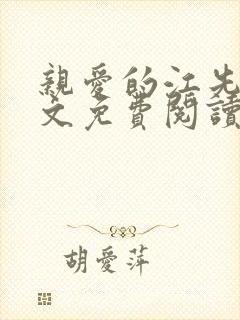 親愛的江先
文免費閱讀
胡愛萍